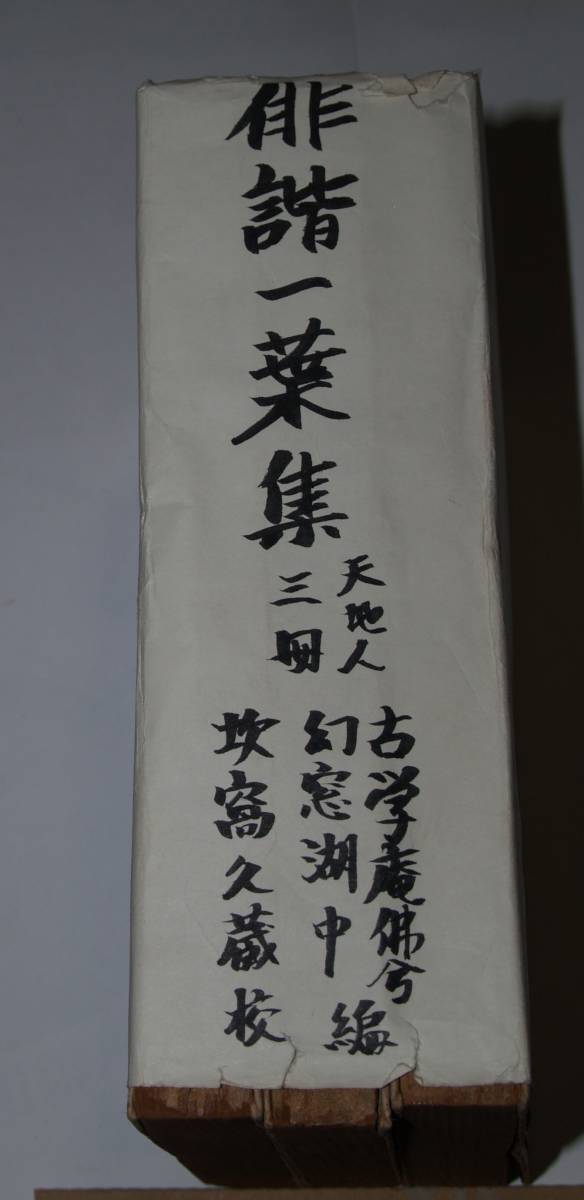 俳諧一葉集
天地人
三冊
古学庵佛兮
幻窓湖中
編
坎窩久蔵校